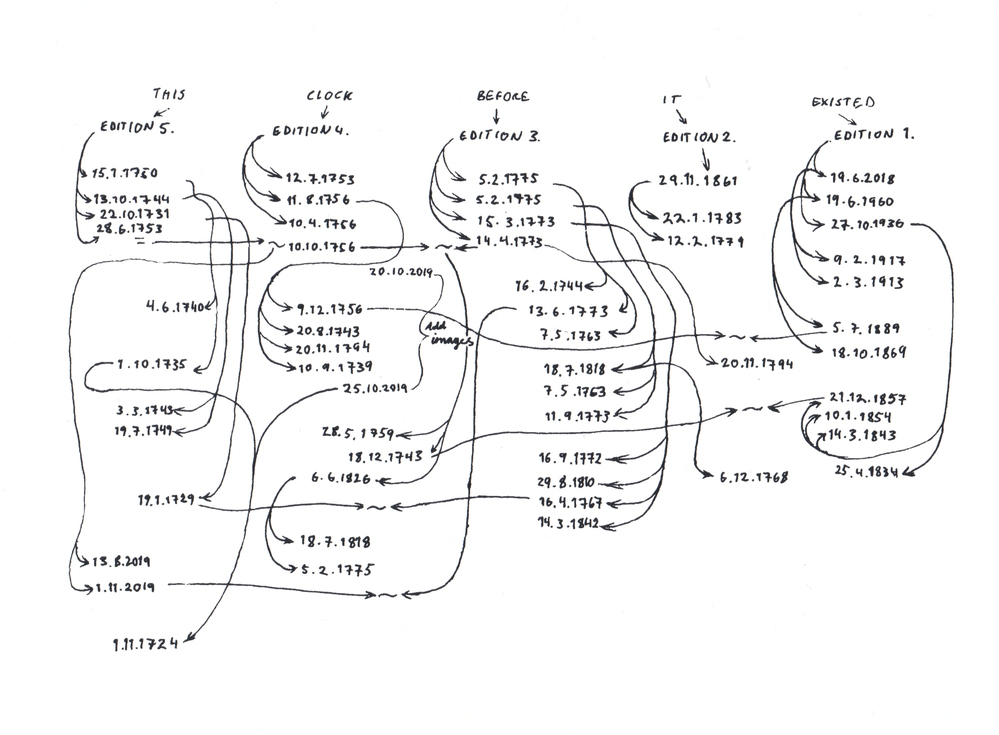 THIS
EDITION 5.
15.1.1750
13.10.1744
22.10.1731
28.6.1753
=
4.6.1740
1.10.1735
3.3.1743
19.7.1749
19.1.1729
13.8.2019
1.11.2019
1.11.1724
CLOCK
EDITION 4.
12.7.1753
11.8.1756
10.4.1756
~ 10.10.1756
20.10.2019
9.12.1756
20.8.1743
20.11.1794
10.9.1739
Add
images
25.10.2019
28.5.1759
18.12.1743
6.6.1826
~
18.7.1818
5.2.1775
~
BEFORE
EDITION 3.
5.2.1775
5.2.1775
15.3.1773
~ 14.4.1773
16.2.1744
13.6.1773
7.5.1763
18.7.1818
7.5.1763
11.9.1773
16.9.1772
29.8.1810
16.4.1767
14.3.1842
IT
EDITION 2.
29.11.1861
22.1.1783
12.2.1779
~
20.11.1794
~
6.12.1768
EXISTED
EDITION 1.
19.6.2018
19.6.1960
27.10.1936
9.2.1917
2.3.1913
5.7.1889
18.10.1869
21.12.1857
10.1.1854
14.3.1843
25.4.1834